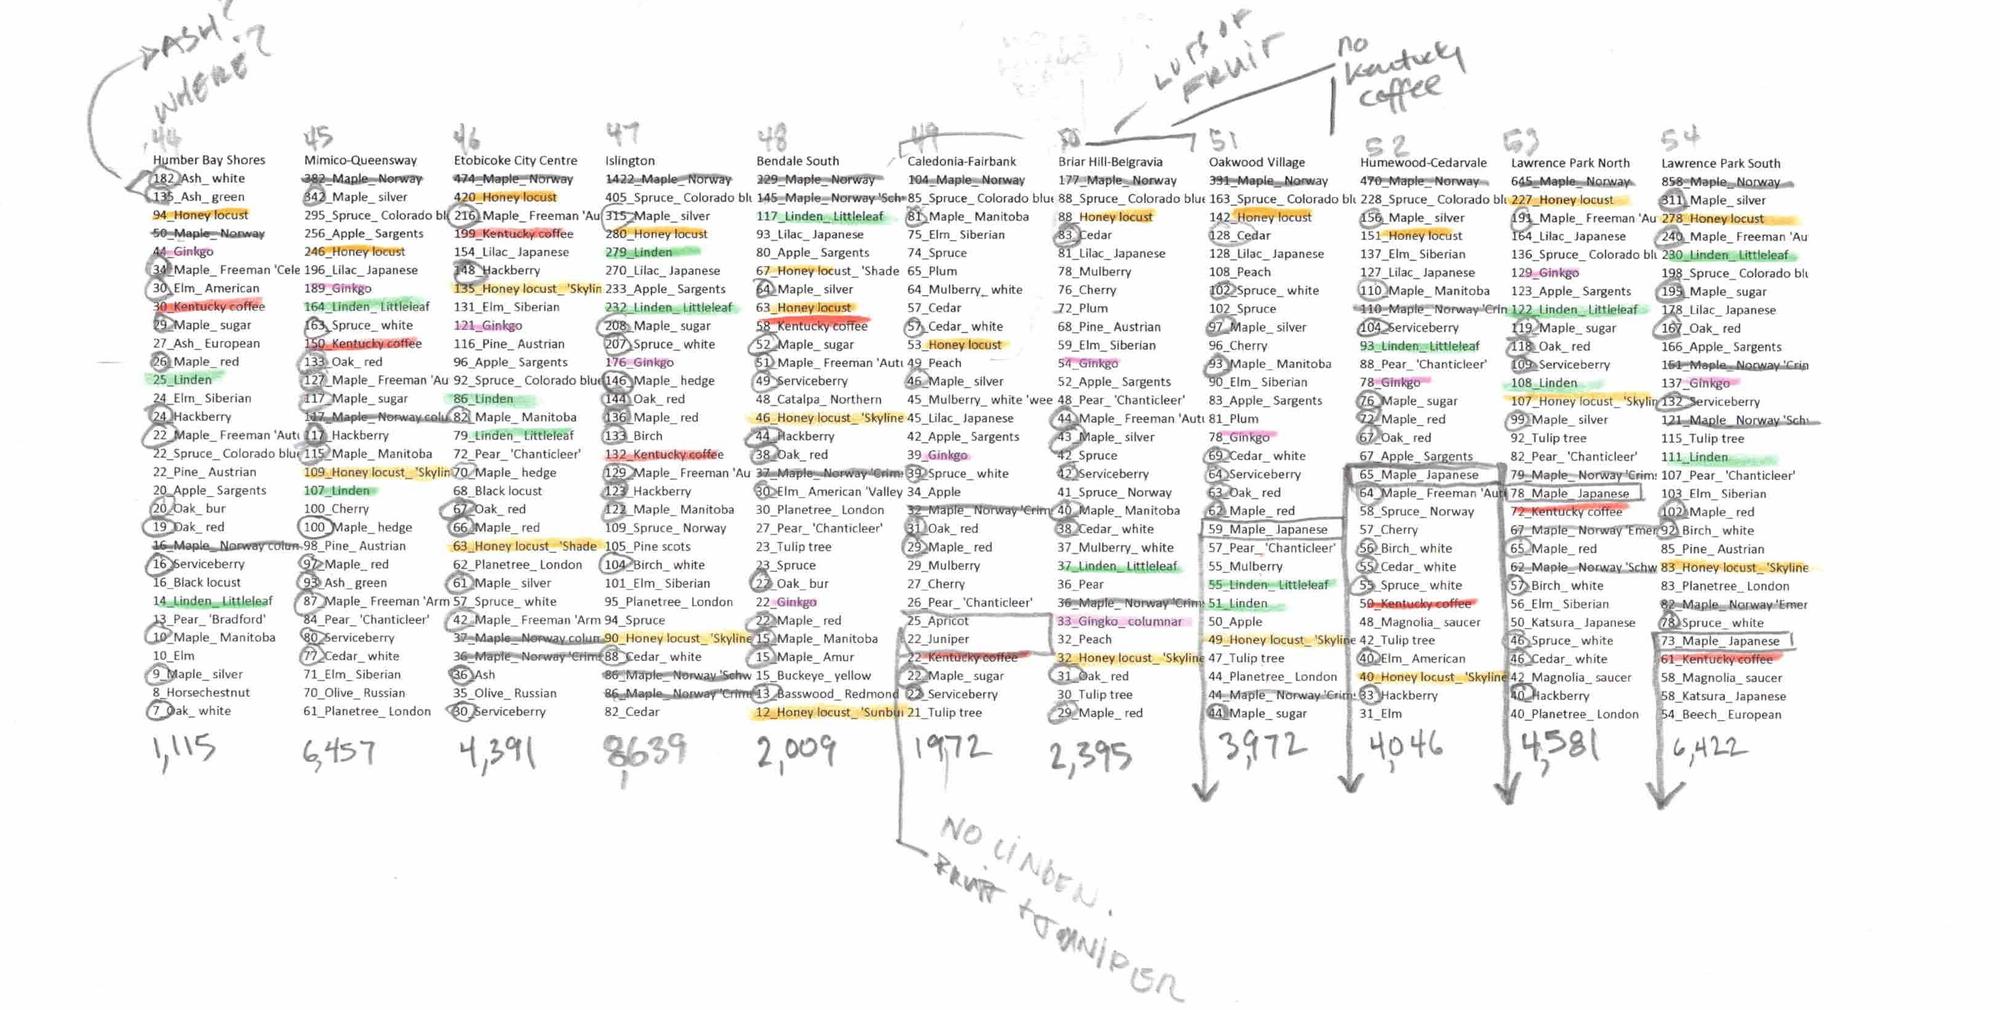 ASH?
WHERE?
LOTS OF
FRUIT
no
Kentucky
coffee
44
Humber Bay Shores
182_Ash_ white
135_Ash_ green
94_Honey locust
50_Maple_ Norway
44_Ginkgo
34_Maple_ Freeman 'Cele
30_Elm_ American
30_Kentucky coffee
29_Maple_ sugar
27_Ash_ European
26_Maple_ red
25_Linden
24_Elm_ Siberian
24_Hackberry
22_Maple_ Freeman 'Aut
22_Spruce_ Colorado blue
22_Pine_ Austrian
20_Apple_ Sargents
20_Oak_ bur
19_Oak_ red
16_Maple_ Norway colun
16_Serviceberry
16_Black locust
14_Linden_ Littleleaf
13_Pear_ 'Bradford'
10_Maple_ Manitoba
10_Elm
9_Maple_ silver
8_Horsechestnut
7_Oak_ white
1,115
45
Mimico-Queensway
382_Maple_ Norway
342_Maple_ silver
295_Spruce_ Colorado bl
256_Apple_ Sargents
246_Honey locust
196_Lilac_ Japanese
189_Ginkgo
164_Linden_ Littleleaf
163_Spruce_ white
150_Kentucky coffee
133_Oak_ red
127_Maple_ Freeman 'Au
117_Maple_ sugar
117_Maple_ Norway colu
117_Hackberry
115_Maple_ Manitoba
109_Honey locust_ 'Skylin
107_Linden
100_Cherry
100_Maple_ hedge
98_Pine_ Austrian
97_Maple_ red
93_Ash_ green
87_Maple_ Freeman 'Arm
84_Pear_ 'Chanticleer'
80_Serviceberry
77_Cedar_ white
71_Elm_ Siberian
70_Olive_ Russian
61_Planetree_ London
6,457
46
Etobicoke City Centre
474_Maple_ Norway
420_Honey locust
216_Maple_ Freeman 'Au
199_Kentucky coffee
154_Lilac_ Japanese
148_Hackberry
135_Honey locust_ 'Skylin
131_Elm_ Siberian
121_Ginkgo
116_Pine_ Austrian
96_Apple_ Sargents
92_Spruce_ Colorado blue
86_Linden
82_Maple_ Manitoba
79_Linden_ Littleleaf
72_Pear_ 'Chanticleer'
70_Maple_ hedge
68_Black locust
67_Oak_ red
66_Maple_ red
63_Honey locust_ 'Shade
62_Planetree_ London
61_Maple_ silver
57_Spruce_ white
42_Maple_ Freeman 'Arm
37_Maple_ Norway colun
36_Maple_ Norway 'Crim
36_Ash
35_Olive_ Russian
30_Serviceberry
4,391
47
Islington
1422_Maple_ Norway
405_Spruce_ Colorado blu
315_Maple_ silver
280_Honey locust
279_Linden
270_Lilac_ Japanese
233_Apple_ Sargents
232_Linden_ Littleleaf
208_Maple_ sugar
207_Spruce_ white
176_Ginkgo
146_Maple_ hedge
144_Oak_ red
136_Maple_ red
133_Birch
132_Kentucky coffee
129_Maple_ Freeman 'Au
123_Hackberry
122_Maple_ Manitoba
109_Spruce_ Norway
105_Pine scots
104_Birch_ white
101_Elm_ Siberian
95_Planetree_ London
94_Spruce
90_Honey locust_ 'Skyline
88_Cedar_ white
86_Maple_ Norway 'Schw
86_Maple_ Norway 'Crim
82_Cedar
8,639
48
Bendale South
329_Maple_ Norway
145_Maple_ Norway 'Sch
117_Linden_ Littleleaf
93_Lilac_ Japanese
80_Apple_ Sargents
67_Honey locust_ 'Shade
64_Maple_ silver
63_Honey locust
58_Kentucky coffee
52_Maple_ sugar
51_Maple_ Freeman 'Aut
49_Serviceberry
48_Catalpa_ Northern
46_Honey locust_ 'Skyline
44_Hackberry
38_Oak_ red
37_Maple_ Norway 'Crim
30_Elm_ American 'Valley
30_Planetree_ London
27_Pear_ 'Chanticleer'
23_Tulip tree
23_Spruce
22_Oak_ bur
22_Ginkgo
22_Maple_ red
15_Maple_ Manitoba
15_Maple_ Amur
15_Buckeye_ yellow
13_Basswood_ Redmond
12_Honey locust_ 'Sunbu
2,009
49
Caledonia-Fairbank
104_Maple_ Norway
85_Spruce_ Colorado blue
81_Maple_ Manitoba
75_Elm_ Siberian
74_Spruce
65_Plum
64_Mulberry_ white
57_Cedar
57_Cedar_ white
53_Honey locust
49_Peach
46_Maple_ silver
45_Mulberry_ white 'wee
45_Lilac_ Japanese
42_Apple_ Sargents
39_Ginkgo
39_Spruce_ white
34_Apple
32_Maple_ Norway 'Crim
31_Oak_ red
29_Maple_ red
29_Mulberry
27_Cherry
26_Pear_ 'Chanticleer'
25_Apricot
22_Juniper
22_Kentucky coffee
22_Maple_ sugar
22_Serviceberry
21_Tulip tree
1972
50
Briar Hill-Belgravia
177_Maple_ Norway
88_Spruce_ Colorado blue
88_Honey locust
83_Cedar
81_Lilac_ Japanese
78_Mulberry
76_Cherry
72_Plum
68_Pine_ Austrian
59_Elm_ Siberian
54_Ginkgo
52_Apple_ Sargents
48_Pear_ 'Chanticleer'
44_Maple_ Freeman 'Aut
43_Maple_ silver
42_Spruce
42_Serviceberry
41_Spruce_ Norway
40_Maple_ Manitoba
38_Cedar_ white
37_Mulberry_ white
37_Linden_ Littleleaf
36_Pear
36_Maple_ Norway 'Crim
33_Gingko_ columnar
32_Peach
32_Honey locust_ 'Skyline
31_Oak_ red
30_Tulip tree
29_Maple_ red
2,395
51
Oakwood Village
331_Maple_ Norway
163_Spruce_ Colorado blu
142_Honey locust
128_Cedar
128_Lilac_ Japanese
108_Peach
102_Spruce_ white
102_Spruce
97_Maple_ silver
96_Cherry
93_Maple_ Manitoba
90_Elm_ Siberian
83_Apple_ Sargents
81_Plum
78_Ginkgo
69_Cedar_ white
64_Serviceberry
63_Oak_ red
62_Maple_ red
59_Maple_ Japanese
57_Pear_ 'Chanticleer'
55_Mulberry
55_Linden_ Littleleaf
51_Linden
50_Apple
49_Honey locust_ 'Skyline
47_Tulip tree
44_Planetree_ London
44_Maple_ Norway 'Crim
44_Maple_ sugar
3,972
52
Humewood-Cedarvale
470_Maple_ Norway
228_Spruce_ Colorado blu
156_Maple_ silver
151_Honey locust
137_Elm_ Siberian
127_Lilac_ Japanese
110_Maple_ Manitoba
110_Maple_ Norway 'Crin
104_Serviceberry
93_Linden_ Littleleaf
88_Pear_ 'Chanticleer'
78_Ginkgo
76_Maple_ sugar
72_Maple_ red
67_Oak_ red
67_Apple_ Sargents
65_Maple_ Japanese
64_Maple_ Freeman 'Aut
58_Spruce_ Norway
57_Cherry
56_Birch_ white
55_Cedar_ white
55_Spruce_ white
50_Kentucky coffee
48_Magnolia_ saucer
42_Tulip tree
40_Elm_ American
40_Honey locust_ 'Skyline
33_Hackberry
31_Elm
4,046
53
Lawrence Park North
645_Maple_ Norway
227_Honey locust
191_Maple_ Freeman 'Au
164_Lilac_ Japanese
136_Spruce_ Colorado blu
129_Ginkgo
123_Apple_ Sargents
122_Linden_ Littleleaf
119_Maple_ sugar
118_Oak_ red
109_Serviceberry
108_Linden
107_Honey locust_ 'Skylin
99_Maple_ silver
92_Tulip tree
82_Pear_ 'Chanticleer'
79_Maple_ Norway 'Crim
78_Maple_ Japanese
72_Kentucky coffee
67_Maple_ Norway 'Emer
65_Maple_ red
62_Maple_ Norway 'Schw
57_Birch_ white
56_Elm_ Siberian
50_Katsura_ Japanese
46_Spruce_ white
46_Cedar_ white
42_Magnolia_ saucer
40_Hackberry
40_Planetree_ London
4,581
54
Lawrence Park South
858_Maple_ Norway
311_Maple_ silver
278_Honey locust
240_Maple_ Freeman 'Au
230_Linden_ Littleleaf
198_Spruce_ Colorado blu
195_Maple_ sugar
178_Lilac_ Japanese
167_Oak_ red
166_Apple_ Sargents
151_Maple_ Norway 'Crin
137_Ginkgo
132_Serviceberry
121_Maple_ Norway 'Schv
115_Tulip tree
111_Linden
107_Pear_ 'Chanticleer'
103_Elm_ Siberian
102_Maple_ red
92_Birch_ white
85_Pine_ Austrian
83_Honey locust_ 'Skyline
83_Planetree_ London
82_Maple_ Norway 'Emer
78_Spruce_ white
73_Maple_ Japanese
61_Kentucky coffee
58_Magnolia_ saucer
58_Katsura_ Japanese
54_Beech_ European
6,422
NO LINDEN.
FRUIT + JUNIPER